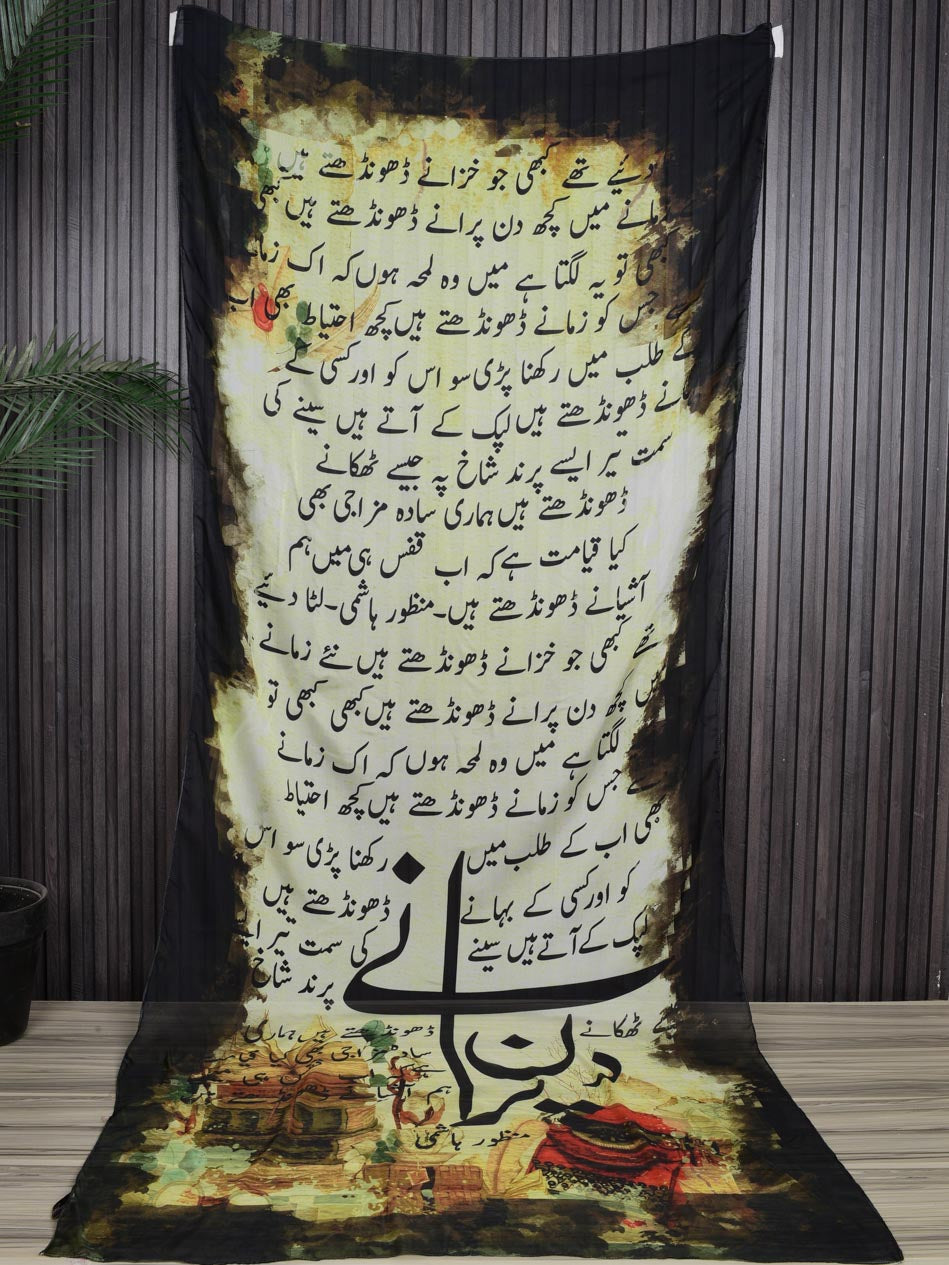 دئیے تھے کبھی جو خزانے ڈھونڈھتے ہیں
زمانے میں کچھ دن پرانے ڈھونڈھتے ہیں کبھی
کبھی تو یہ لگتا ہے میں وہ لمحہ ہوں کہ اک زمانے
سے جس کو زمانے ڈھونڈھتے ہیں کچھ احتیاط بھی اب
کے طلب میں رکھنا پڑی سو اس کو اور کسی کے
بہانے ڈھونڈھتے ہیں لپک کے آتے ہیں سینے کی
سمت تیر ایسے پرند شاخ پہ جیسے ٹھکانے
ڈھونڈھتے ہیں ہماری سادہ مزاجی بھی
کیا قیامت ہے کہ اب قفس ہی میں ہم
آشیانے ڈھونڈھتے ہیں۔منظور ہاشمی۔لٹا دئیے
تھے کبھی جو خزانے ڈھونڈھتے ہیں نئے زمانے
میں کچھ دن پرانے ڈھونڈھتے ہیں کبھی کبھی تو
لگتا ہے میں وہ لمحہ ہوں کہ اک زمانے
سے جس کو زمانے ڈھونڈھتے ہیں کچھ احتیاط
بھی اب کے طلب میں رکھنا پڑی سو اس
کو اور کسی کے بہانے ڈھونڈھتے ہیں
لپک کے آتے ہیں سینے کی سمت تیر
پرند شاخ
ٹھکانے ڈھونڈھتے ہیں ہماری
دن پرانے
منظور ہاشمی